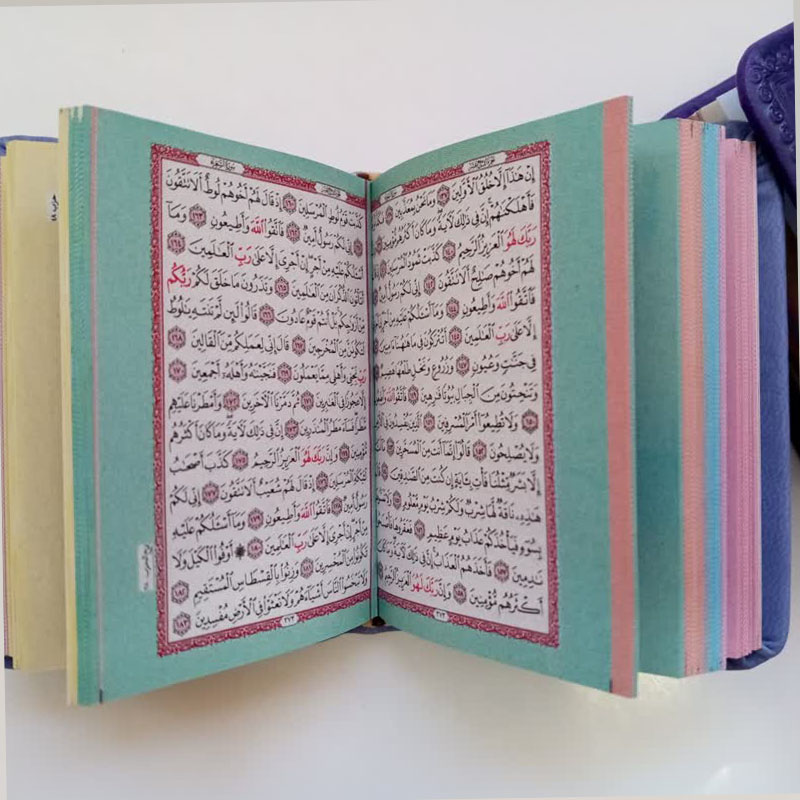 إِنْ هَٰذَا إِلَّا خُلُقُ الْأَوَّلِينَ ١٣٧ وَمَا نَحْنُ بِمُعَذَّبِينَ
فَأَهْلَكْنَٰهُمْ إِنَّ فِى ذَٰلِكَ لَآيَةً وَمَا كَانَ أَكْثَرُهُمْ مُؤْمِنِينَ
رَبَّكَ لَهُوَ الْعَزِيزُ الرَّحِيمُ ١٤٠ كَذَّبَتْ ثَمُودُ الْمُرْسَلِينَ
لَهُمْ أَخُوهُمْ صَٰلِحٌ أَلَا تَتَّقُونَ ١٤٢ إِنِّى لَكُمْ رَسُولٌ
فَاتَّقُوا اللَّهَ وَأَطِيعُونِ ١٤٤ وَمَا أَسْئَلُكُمْ عَلَيْهِ مِنْ
إِلَّا عَلَىٰ رَبِّ الْعَٰلَمِينَ ١٤٥ أَتُتْرَكُونَ فِى مَا هَٰهُنَا آمِنِينَ
فِى جَنَّٰتٍ وَعُيُونٍ ١٤٧ وَزُرُوعٍ وَنَخْلٍ طَلْعُهَا هَضِيمٌ
وَتَنْحِتُونَ مِنَ الْجِبَالِ بُيُوتًا فَٰرِهِينَ ١٤٩ فَاتَّقُوا اللَّهَ وَأَطِيعُونِ
١٥٠ وَلَا تُطِيعُوا أَمْرَ الْمُسْرِفِينَ ١٥١ الَّذِينَ يُفْسِدُونَ فِى
وَلَا يُصْلِحُونَ ١٥٢ قَالُوا إِنَّمَا أَنْتَ مِنَ الْمُسَحَّرِينَ
إِلَّا بَشَرٌ مِثْلُنَا فَأْتِ بِآيَةٍ إِنْ كُنْتَ مِنَ الصَّٰدِقِينَ
هَٰذِهِ نَاقَةٌ لَهَا شِرْبٌ وَلَكُمْ شِرْبُ يَوْمٍ مَعْلُومٍ ١٥٥
بِسُوءٍ فَيَأْخُذَكُمْ عَذَابُ يَوْمٍ عَظِيمٍ ١٥٦ فَعَقَرُوهَا فَأَصْبَحُوا
نَٰدِمِينَ ١٥٧ فَأَخَذَهُمُ الْعَذَابُ إِنَّ فِى ذَٰلِكَ لَآيَةً وَمَا كَانَ
أَكْثَرُهُمْ مُؤْمِنِينَ ١٥٨ وَإِنَّ رَبَّكَ لَهُوَ الْعَزِيزُ الرَّحِيمُ
٣٧٣
كَذَّبَتْ قَوْمُ لُوطٍ الْمُرْسَلِينَ ١٦٠ إِذْ قَالَ لَهُمْ أَخُوهُمْ لُوطٌ أَلَا تَتَّقُونَ
١٦١ إِنِّى لَكُمْ رَسُولٌ أَمِينٌ ١٦٢ فَاتَّقُوا اللَّهَ وَأَطِيعُونِ ١٦٣ وَمَا
أَسْئَلُكُمْ عَلَيْهِ مِنْ أَجْرٍ إِنْ أَجْرِىَ إِلَّا عَلَىٰ رَبِّ الْعَٰلَمِينَ ١٦٤
أَتَأْتُونَ الذُّكْرَانَ مِنَ الْعَٰلَمِينَ ١٦٥ وَتَذَرُونَ مَا خَلَقَ لَكُمْ رَبُّكُمْ
مِنْ أَزْوَٰجِكُمْ بَلْ أَنْتُمْ قَوْمٌ عَادُونَ ١٦٦ قَالُوا لَئِنْ لَمْ تَنْتَهِ يَٰلُوطُ
لَتَكُونَنَّ مِنَ الْمُخْرَجِينَ ١٦٧ قَالَ إِنِّى لِعَمَلِكُمْ مِنَ الْقَالِينَ ١٦٨
رَبِّ نَجِّنِى وَأَهْلِى مِمَّا يَعْمَلُونَ ١٦٩ فَنَجَّيْنَٰهُ وَأَهْلَهُ أَجْمَعِينَ ١٧٠
إِلَّا عَجُوزًا فِى الْغَٰبِرِينَ ١٧١ ثُمَّ دَمَّرْنَا الْآخَرِينَ ١٧٢ وَأَمْطَرْنَا عَلَيْهِمْ
مَطَرًا فَسَاءَ مَطَرُ الْمُنْذَرِينَ ١٧٣ إِنَّ فِى ذَٰلِكَ لَآيَةً وَمَا كَانَ أَكْثَرُهُمْ
مُؤْمِنِينَ ١٧٤ وَإِنَّ رَبَّكَ لَهُوَ الْعَزِيزُ الرَّحِيمُ ١٧٥ كَذَّبَ أَصْحَٰبُ
لْئَيْكَةِ الْمُرْسَلِينَ ١٧٦ إِذْ قَالَ لَهُمْ شُعَيْبٌ أَلَا تَتَّقُونَ ١٧٧ إِنِّى لَكُمْ
رَسُولٌ أَمِينٌ ١٧٨ فَاتَّقُوا اللَّهَ وَأَطِيعُونِ ١٧٩ وَمَا أَسْئَلُكُمْ عَلَيْهِ
مِنْ أَجْرٍ إِنْ أَجْرِىَ إِلَّا عَلَىٰ رَبِّ الْعَٰلَمِينَ ١٨٠ أَوْفُوا الْكَيْلَ وَلَا
تَكُونُوا مِنَ الْمُخْسِرِينَ ١٨١ وَزِنُوا بِالْقِسْطَاسِ الْمُسْتَقِيمِ ١٨٢
وَلَا تَبْخَسُوا النَّاسَ أَشْيَاءَهُمْ وَلَا تَعْثَوْا فِى الْأَرْضِ مُفْسِدِينَ ١٨٣
٣٧٤